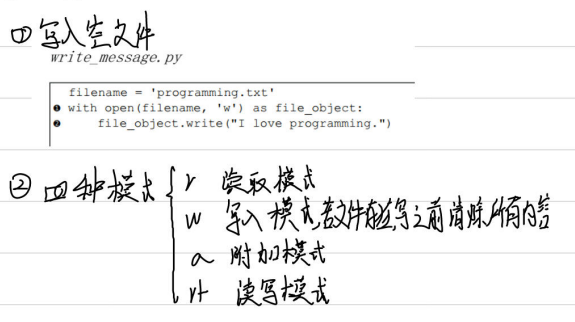 ① 写入空文件
write_message.py
filename = 'programming.txt'
❶ with open(filename, 'w') as file_object:
❷ file_object.write("I love programming.")
② 四种模式
r 读取模式
w 写入模式,若文件存在写之前清除所有内容
a 附加模式
r+ 读写模式